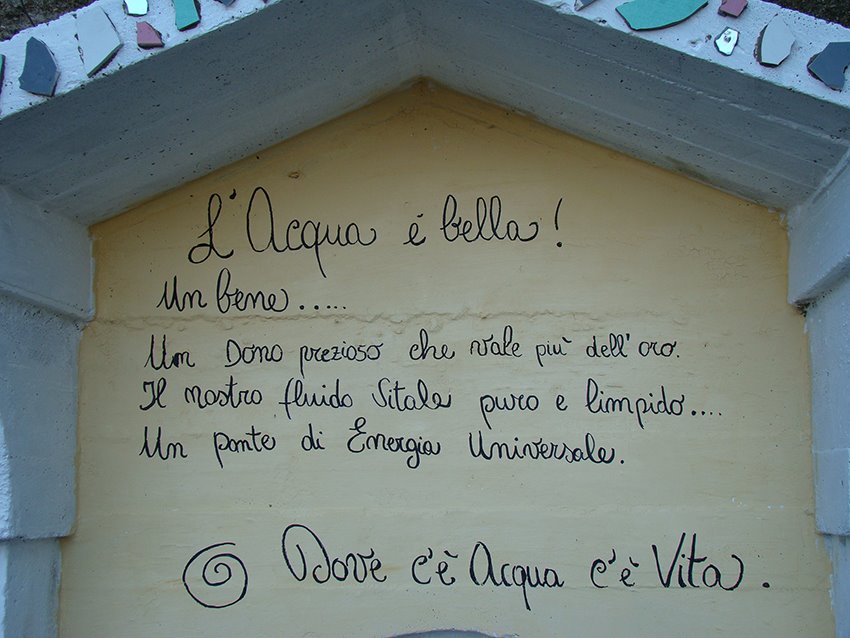 L'Acqua é bella!
Un bene.....
Un Dono prezioso che vale più dell'oro.
Il nostro fluido Vitale puro e limpido....
Un ponte di Energia Universale.
Dove c'è Acqua c'è Vita.